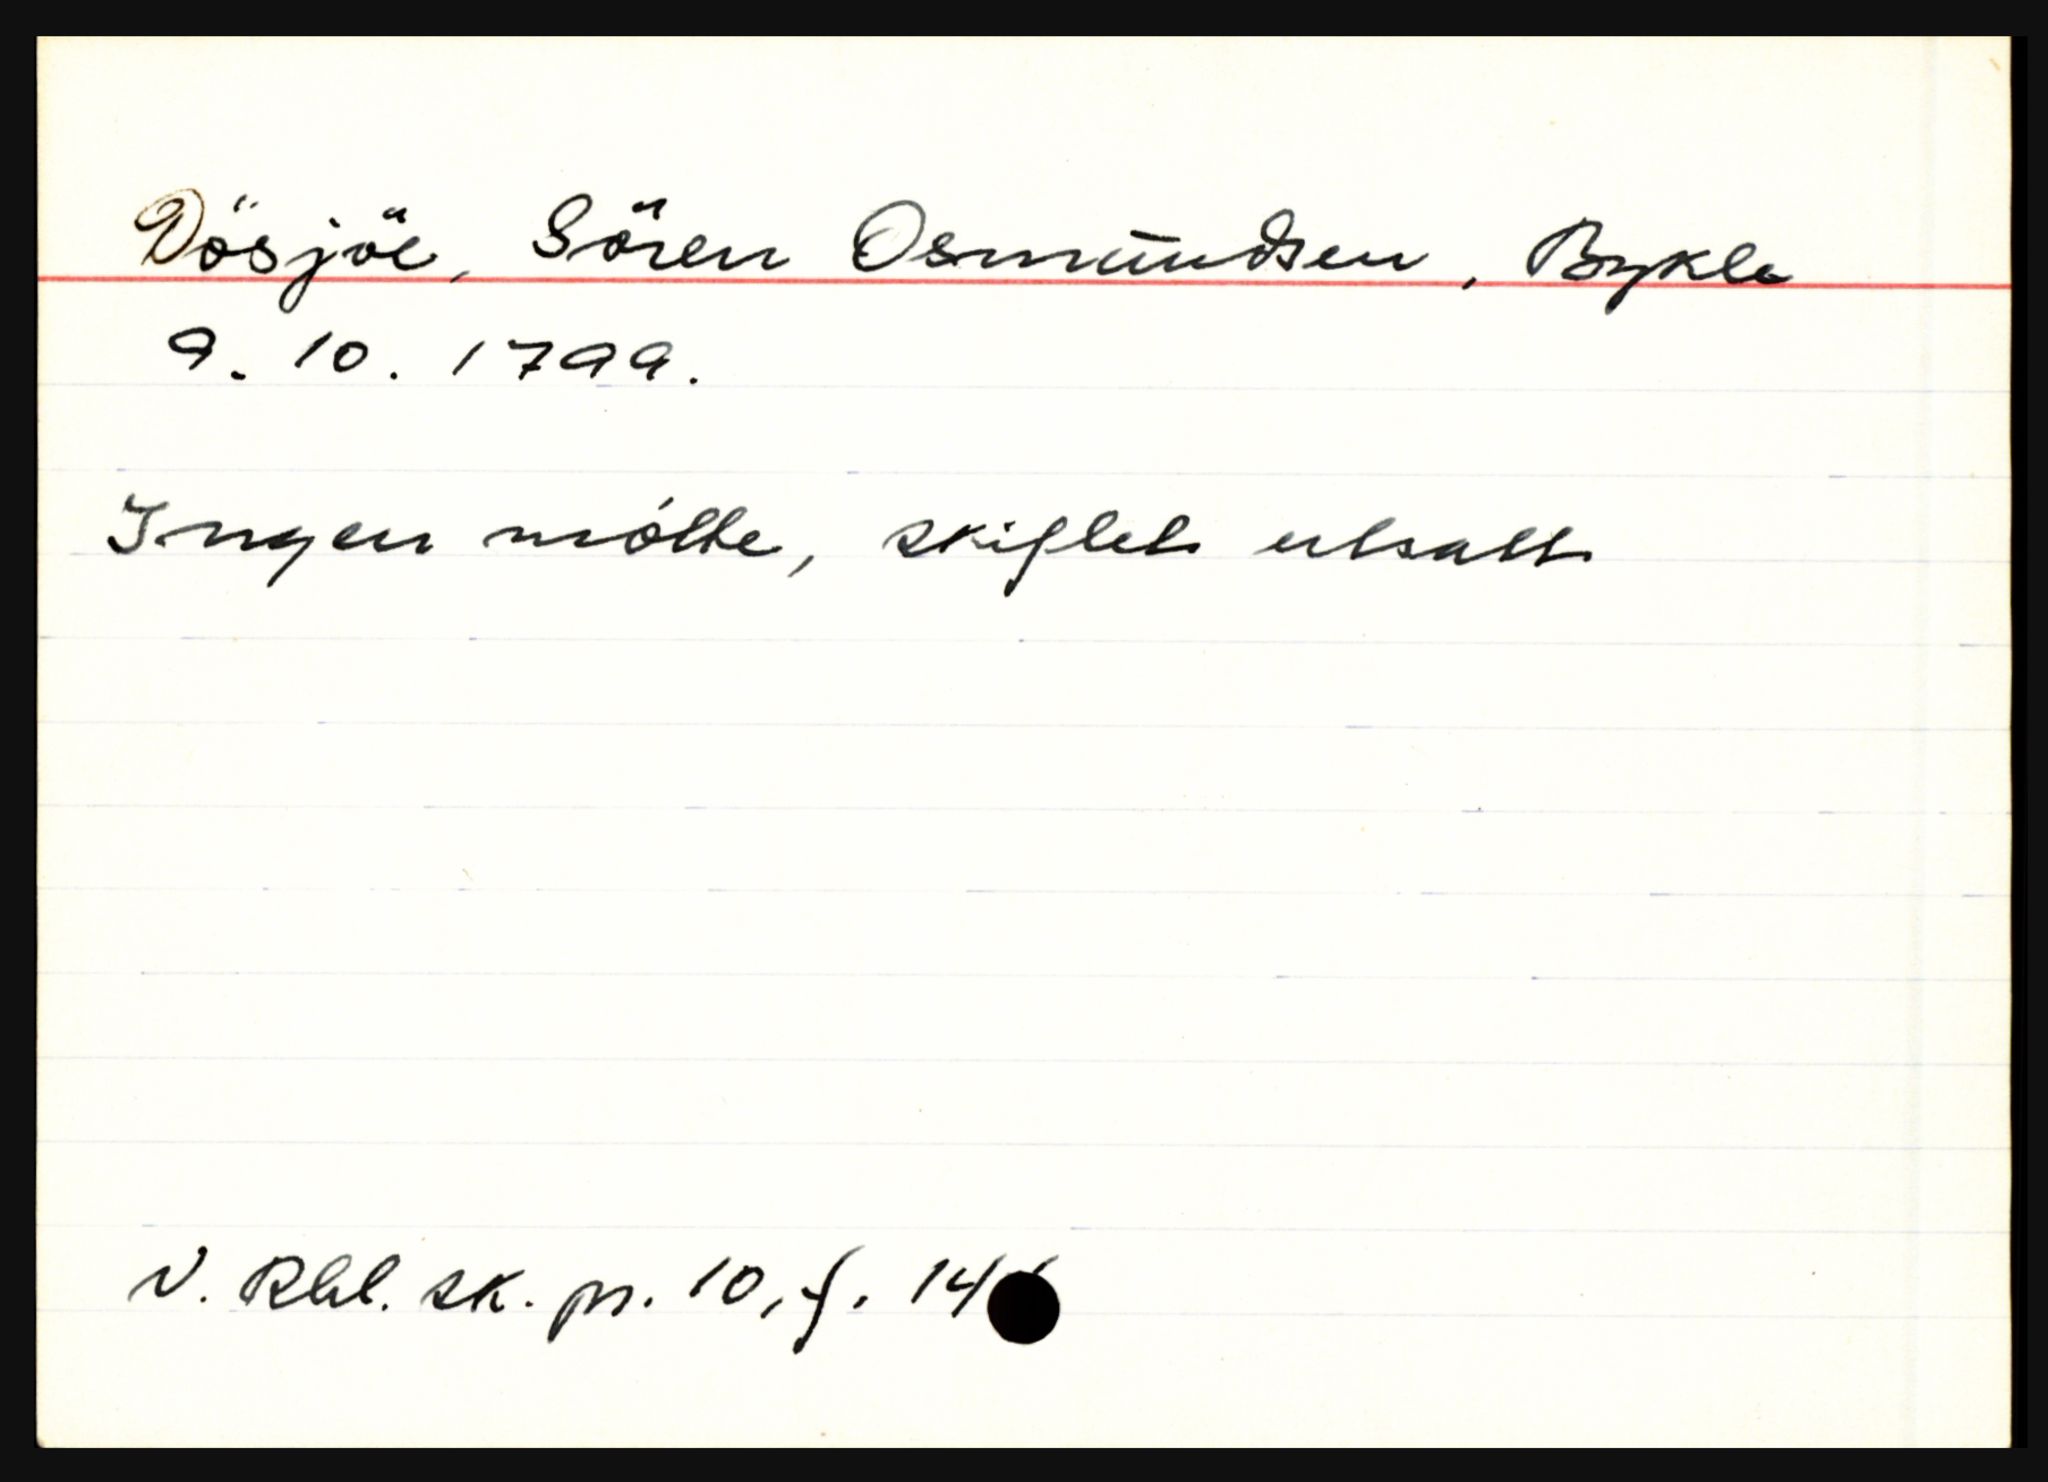 Dösjöe, Sören Osmundsen, Bykle
9. 10. 1799.
Ingen mötte, skiftet utsatt
N. Rbl. sk. pr. 10, f. 14